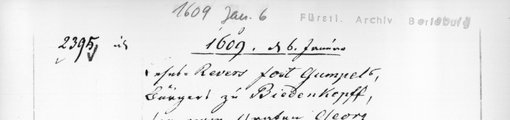 1609 Jan. 6 Fürstl. Archiv Berleburg
2395
1609. d 6. Januar
Lehns Revers Jost Gumpels,
Bürgers zu Biedenkopff,
Georg